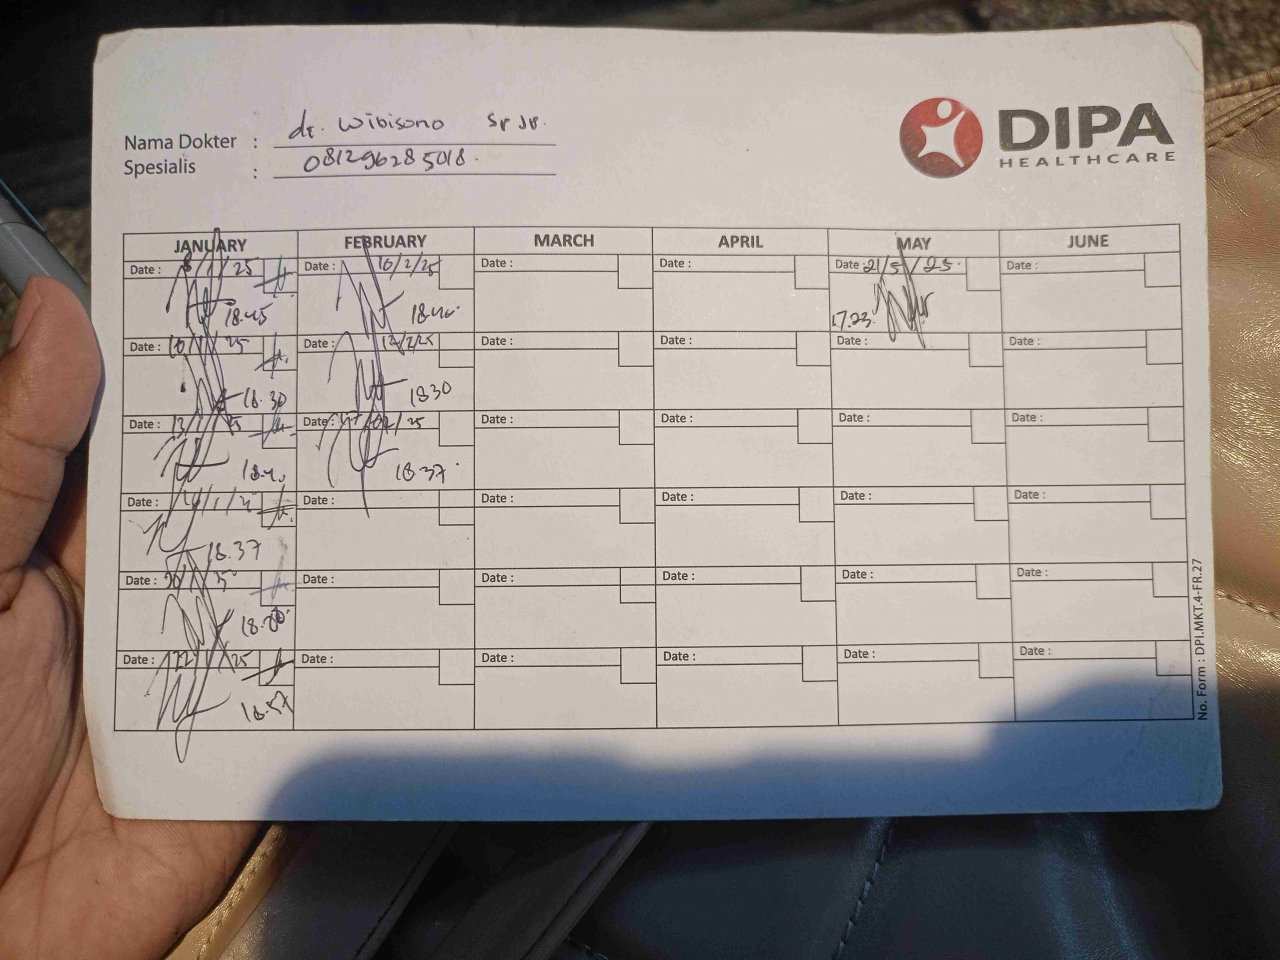 Nama Dokter : dr. Wibisono Sp JP.
Spesialis : 081296285018.
DIPA
HEALTHCARE
JANUARY FEBRUARY MARCH APRIL MAY JUNE
Date : 8/1/25 Date : 10/2/25 Date : Date : Date : 21/5/25. Date :
18.45 18.40 17.23.
Date : 10/1/25 Date : 12/2/25 Date : Date : Date : Date :
18.30 18 30
Date : 13/1/25 Date : 17/02/25 Date : Date : Date : Date :
18.40 18.37
Date : Date : Date : Date : Date : Date :
18.37
Date : 20/1/25 Date : Date : Date : Date : Date :
Date : 22/1/25 Date : Date : Date : Date : Date :
18.57
No. Form : DPI.MKT.4-FR.27